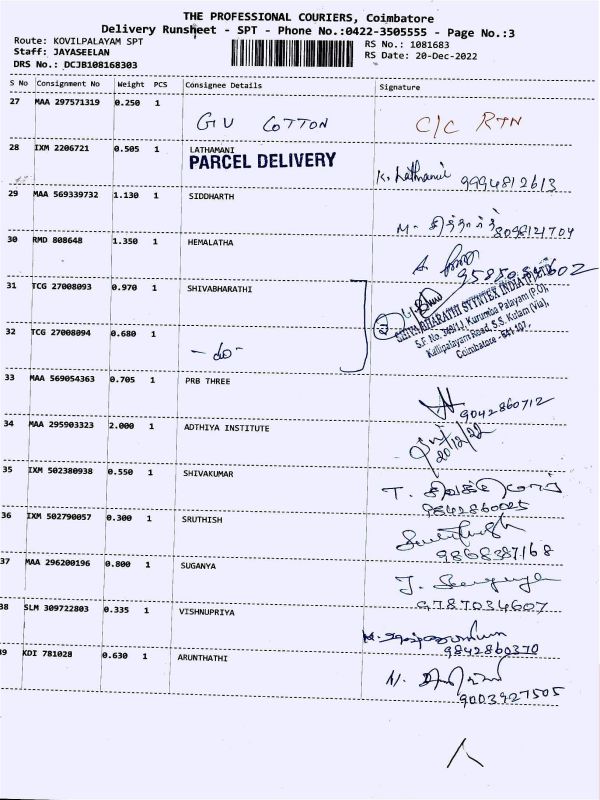 THE PROFESSIONAL COURIERS, Coimbatore
Delivery Runsheet - SPT - Phone No.:0422-3505555 - Page No.:3
Route: KOVILPALAYAM SPT
RS No.: 1081683
Staff: JAYASEELAN
RS Date: 20-Dec-2022
DRS No.: DCJB108168303
S No Consignment No Weight PCS Consignee Details Signature
27 MAA 297571319 0.250 1 GU COTTON C/C RTN
28 IXM 2206721 0.505 1 LATHAMANI
PARCEL DELIVERY
K. Lathamani 9994812613
29 MAA 569339732 1.130 1 SIDDHARTH
M. சித்தார்த் 8098121704
30 RMD 808648 1.350 1 HEMALATHA
31 TCG 27008093 0.970 1 SHIVABHARATHI
2
SHIVABHARATHI SYNTEX INDIA (P) LTD
S.F. No. 349/1J, Kurumba Palayam (P.O),
Kallipalayam Road, S.S. Kulam (Via),
Coimbatore - 641 107.
32 TCG 27008094 0.680 1 - do -
33 MAA 569054363 0.705 1 PRB THREE
9042860712
34 MAA 295903323 2.000 1 ADTHIYA INSTITUTE
20/12/22
35 IXM 502380938 0.550 1 SHIVAKUMAR
T. சிவக்குமார்
9842860025
36 IXM 502790057 0.300 1 SRUTHISH
9868387168
37 MAA 296200196 0.800 1 SUGANYA
J. Suganya
9787034607
38 SLM 309722803 0.335 1 VISHNUPRIYA
9842860370
39 KDI 781028 0.630 1 ARUNTHATHI
9003927505